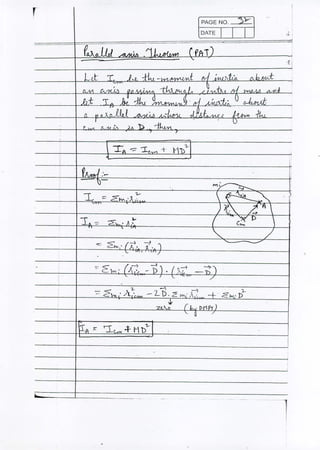 PAGE NO. 32
DATE
Parallel axis Theorem (PAT)
Let Icm be the moment of inertia about
an axis passing through centre of mass and
let IA be the moment of inertia about
a parallel axis whose distance from the
c.m axis is D, then,
IA = Icm + MD²
Proof:-
Icm = Σmi ri/cm²
IA = Σmi ri/A²
= Σmi (ri/A . ri/A)
= Σmi (ri/cm - D) . (ri/cm - D)
= Σmi ri/cm² - 2D. Σmi ri/cm + Σmi D²
zero (by DMPs)
IA = Icm + MD²
mi
A
D
Cm